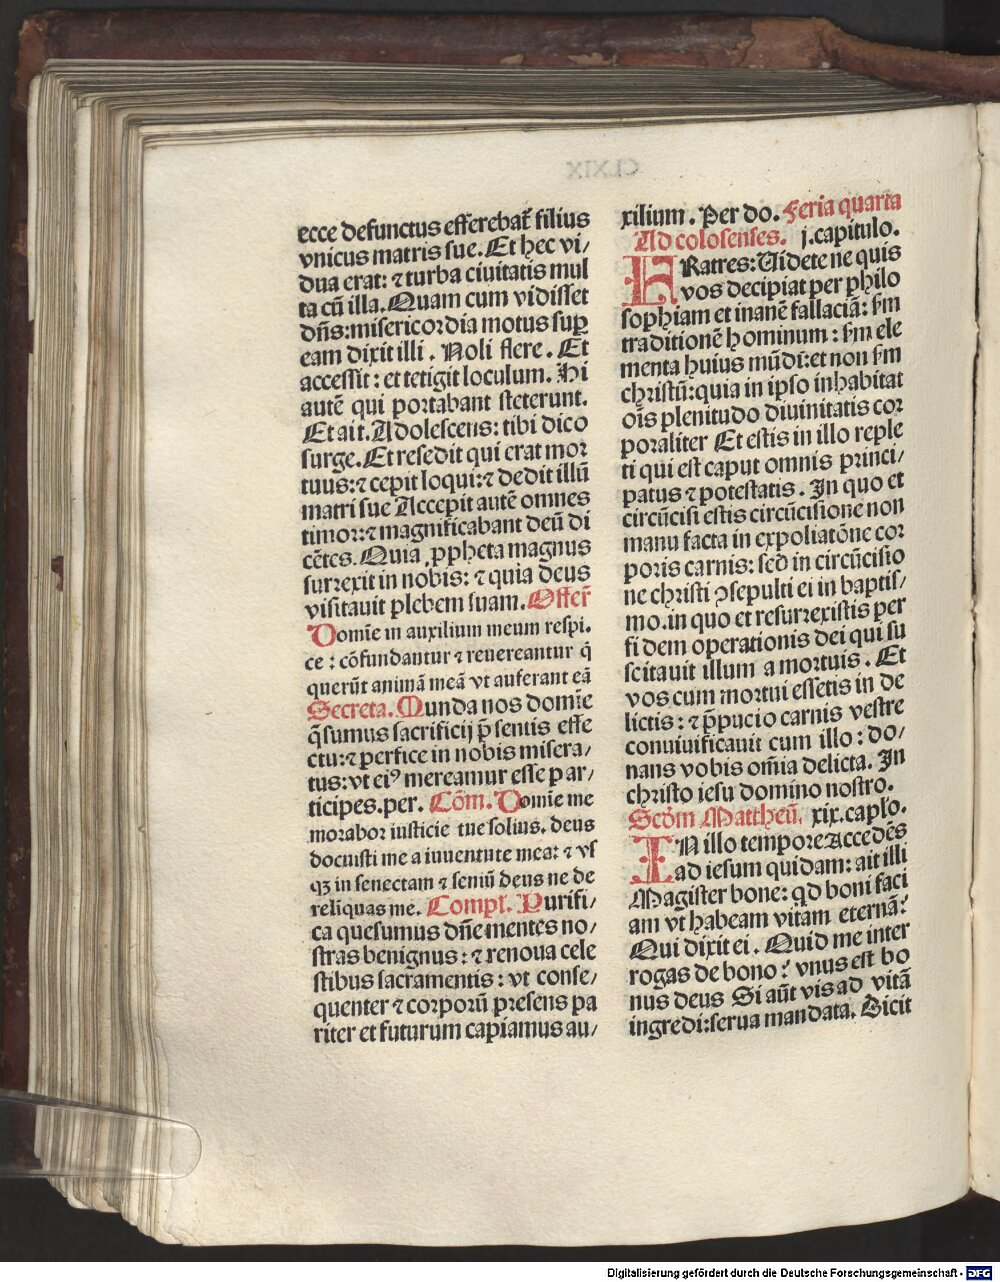 CLXIX
ecce defunctus efferebat᷑ filius
vnicus matris sue. Et hec vi/
dua erat: ⁊ turba ciuitatis mul
ta cū illa. Quam cum vidisset
dn̄s: misericordia motus suꝑ
eam dixit illi. Noli flere. Et
accessit: et tetigit loculum. Hi
autē qui portabant steterunt.
Et ait. Adolescens: tibi dico
surge. Et resedit qui erat mor
tuus: ⁊ cepit loqui: ⁊ dedit illū
matri sue Accepit autē omnes
timor: ⁊ magnificabant deū di
cētes. Quia ꝓpheta magnus
surrexit in nobis: ⁊ quia deus
visitauit plebem suam. Offer᷑
Domīe in auxilium meum respi.
ce: cōfundantur ⁊ reuereantur q̄
querūt animā meā vt auferant eā
Secreta. Munda nos domīe
q̄sumus sacrificij p̄sentis effe
ctu: ⁊ perfice in nobis misera/
tus: vt eiꝰ mereamur esse par/
ticipes. per. Cōm. Domīe me
morabor iusticie tue solius. deus
docuisti me a iuuentute mea: ⁊ vs
qꝫ in senectam ⁊ seniū deus ne de
relīquas me. Compl. Purifi/
ca quesumus dn̄e mentes no/
stras benignus: ⁊ renoua cele
stibus sacramentis: vt conse/
quenter ⁊ corporū presens pa
riter et futurum capiamus au/
xilium. Per do. Feria quarta
Ad colosenses. j. capitulo.
FRatres: Uidete ne quis
vos decipiat per philo
sophiam et inanē fallaciā: s̄m
traditionē hominum: s̄m ele
menta huius mūdi: et non s̄m
christū: quia in ipso inhabitat
oīs plenitudo diuinitatis cor
poraliter Et estis in illo reple
ti qui est caput omnis princi/
patus ⁊ potestatis. In quo et
circūcisi estis circūcisione non
manu facta in expoliatōne cor
poris carnis: sed in circūcisio
ne christi ꝯsepulti ei in baptis/
mo. in quo et resurrexistis per
fidem operationis dei qui su
scitauit illum a mortuis. Et
vos cum mortui essetis in de
lictis: ⁊ p̄pucio carnis vestre
conuiuificauit cum illo: do/
nans vobis om̄ia delicta. In
christo iesu domino nostro.
Scd̄m Mattheū. xix. caplo.
IN illo tempore Accedēs
ad iesum quidam: ait illi
Magister bone: qd boni faci
am vt habeam vitam eternā?
Qui dixit ei. Quid me inter
rogas de bono? vnus est bo
nus deus Si aūt vis ad vitā
ingredi: serua mandata. Dicit
Digitalisierung gefördert durch die Deutsche Forschungsgemeinschaft - DFG